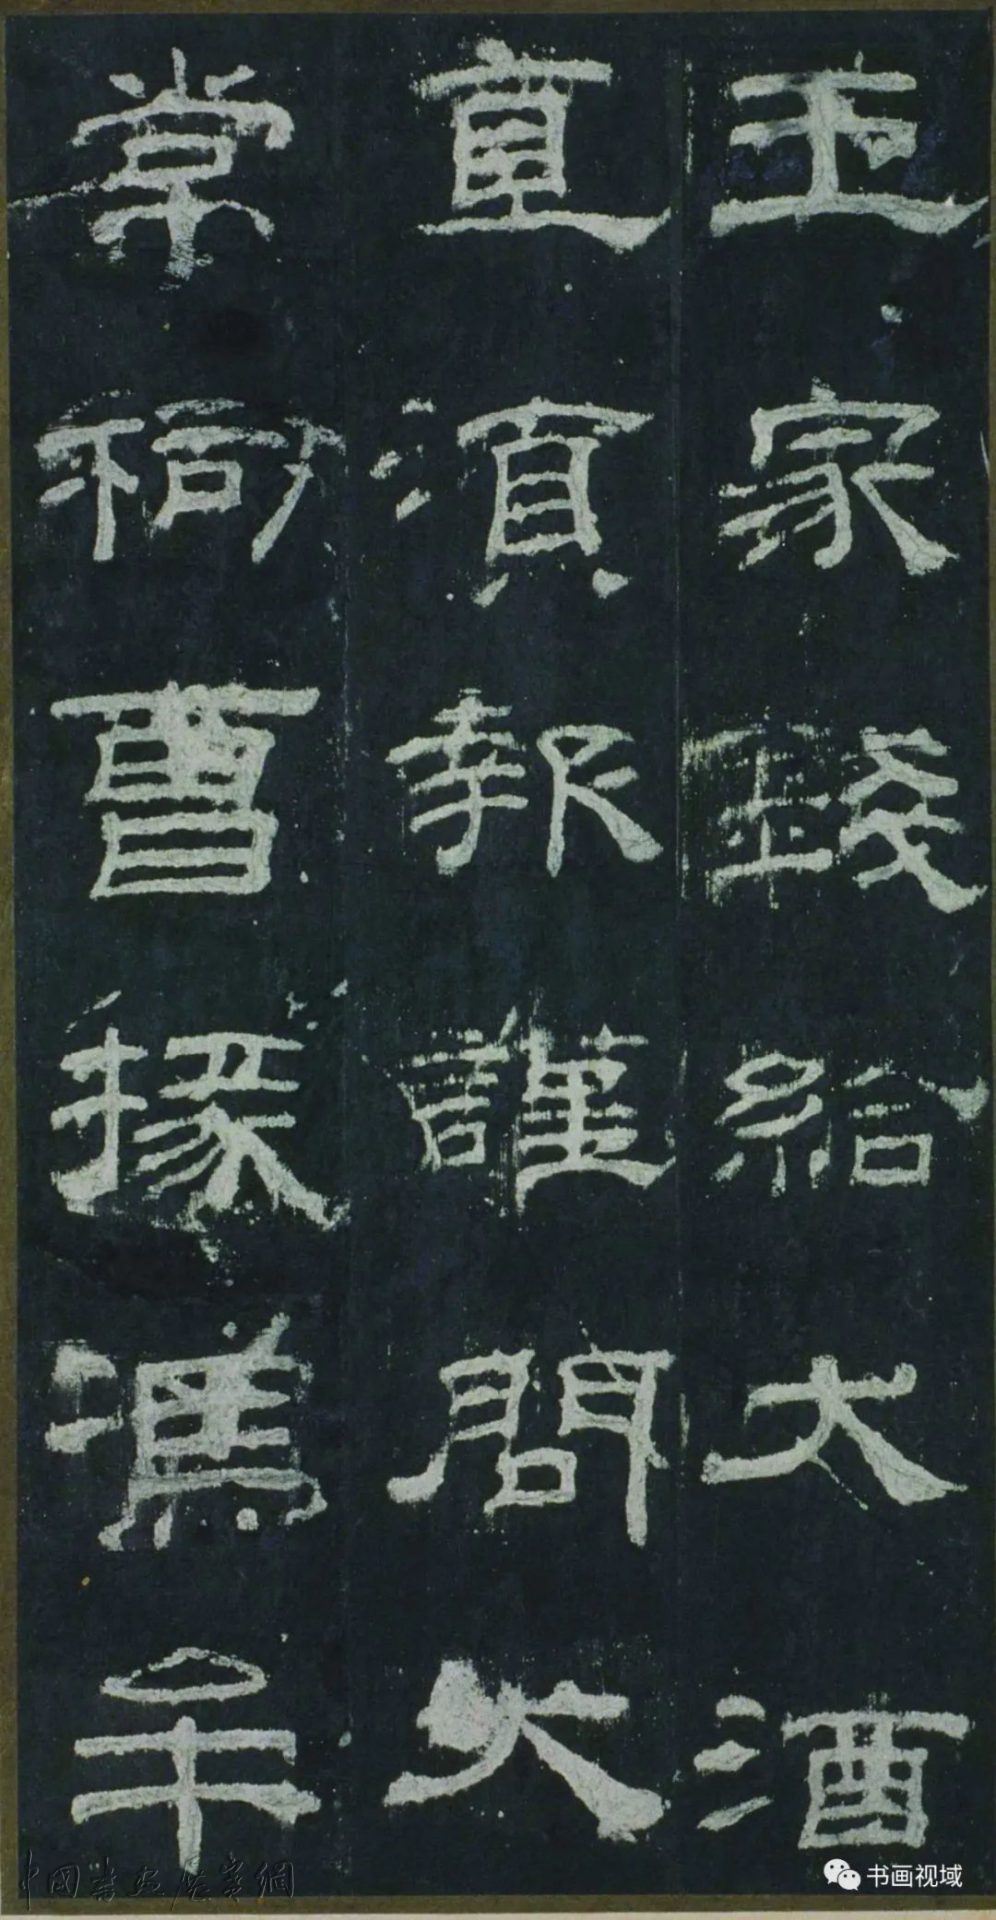 王家錢給大酒
直須報謹問大
常祠曹掾馮牟
中国书画展赛网
书画视域